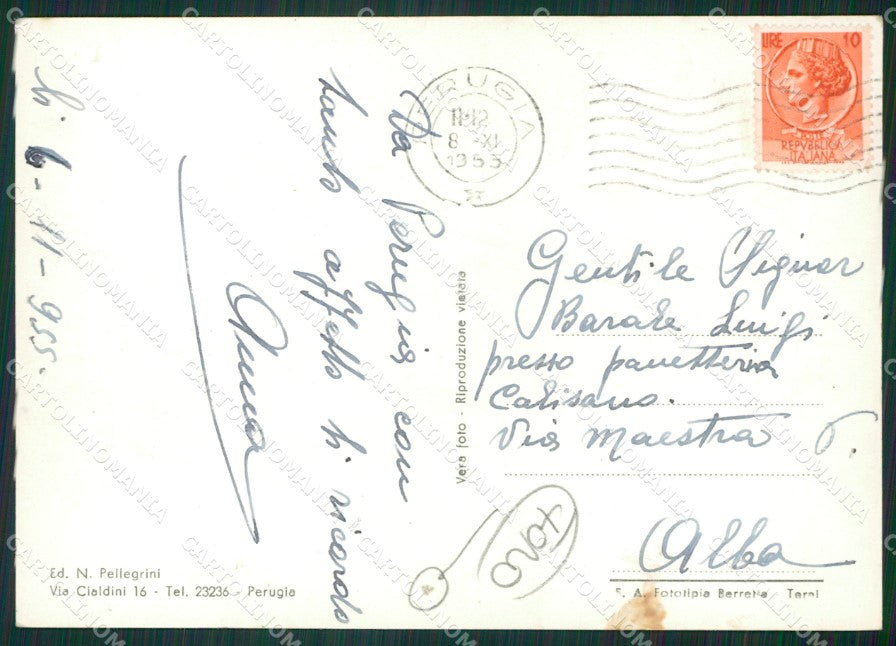 li 6-11-955.
Da Perugia con
tanto affetto ti ricordo
Anna
PERUGIA
11-12
8 -XI
1955
LIRE 10
REPVBBLICA
ITALIANA
Gentile Signor
Barale Luigi
presso panetteria
Calisano.
Via Maestra 6.
Alba
Vera foto - Riproduzione vietata
4040
Ed. N. Pellegrini
Via Cialdini 16 - Tel. 23236 - Perugia
S. A. Fototipia Berretta - Terni
CARTOLINOMANIA